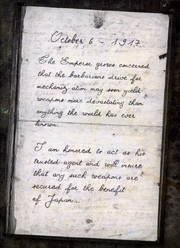 October 6 - 1917
The Emperor grows concerned
that the barbarians drive for
mechanization may soon yield
weapons more devastating than
anything the world has ever
known.
I am honored to act as his
trusted agent and will insure
that any such weapons are
secured for the benefit
of Japan...